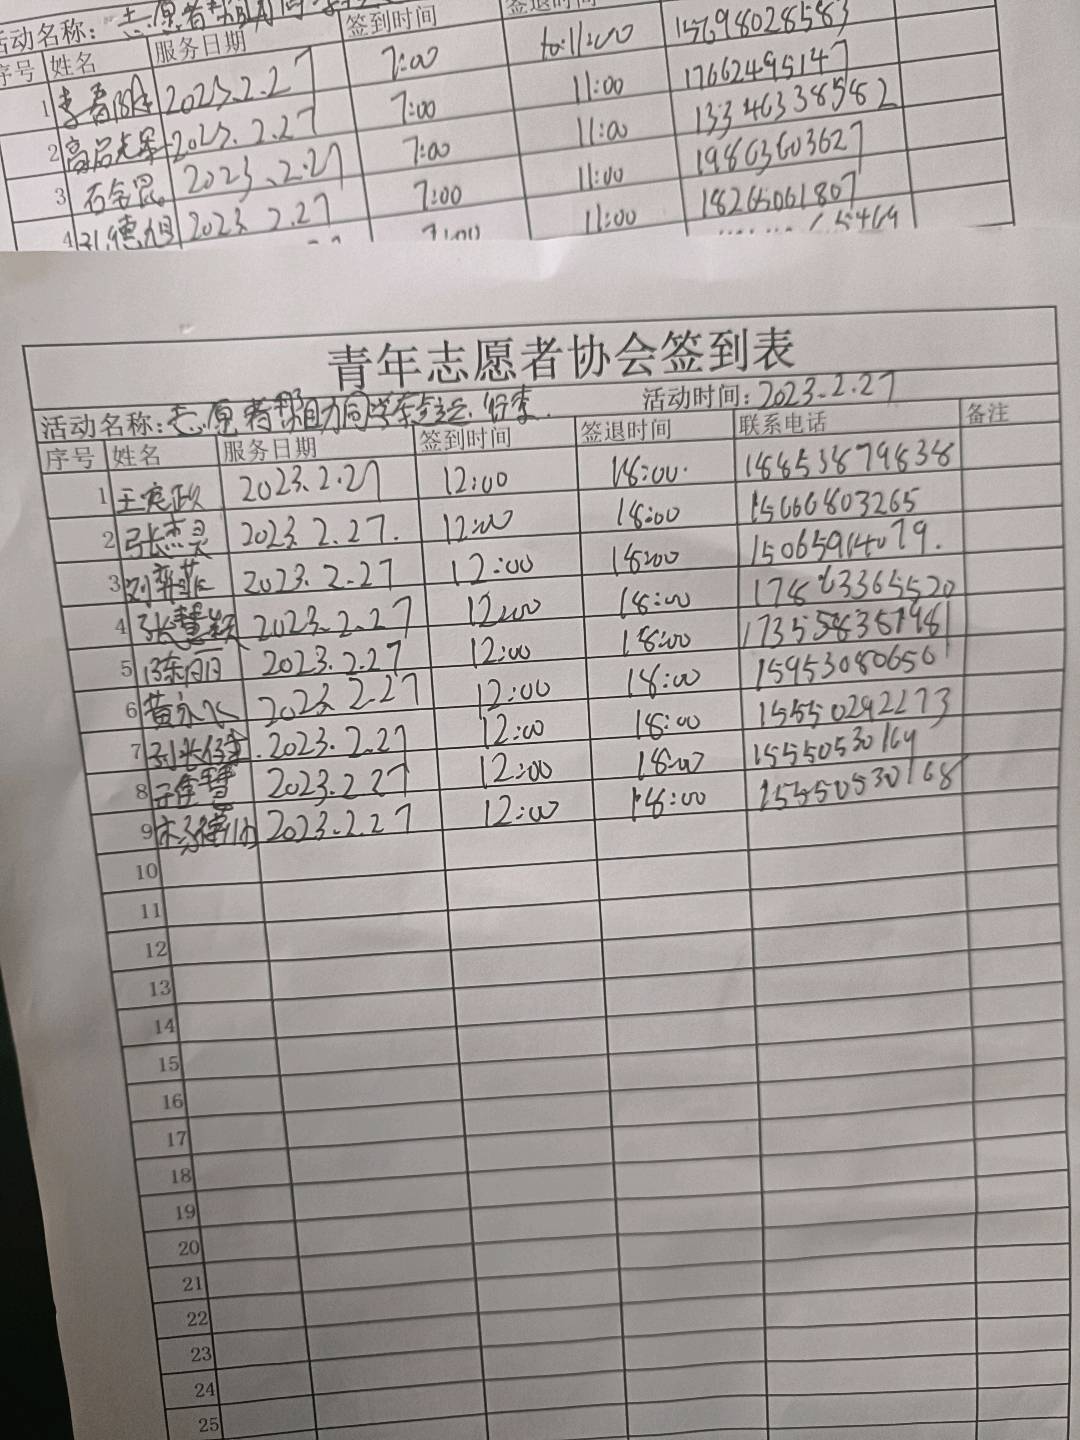 活动名称: 志愿者帮助同学
序号 姓名 服务日期 签到时间 签退时间
1 李春 2023.2.27 7:00 to:11:00 15698028583
2 2023.2.27 7:00 11:00 17662495147
3 石 2023.2.27 7:00 11:00 13346338582
4 孔德旭 2023.2.27 7:00 11:00 19863603627
7:00 11:00 18265061807
5469
青年志愿者协会签到表
活动名称: 志愿者帮助同学 运行李. 活动时间: 2023.2.27
序号 姓名 服务日期 签到时间 签退时间 联系电话 备注
1 王宪政 2023.2.27 12:00 18:00. 18853879838
2 张杰灵 2023.2.27. 12:00 18:00 15666803265
3 刘 2023.2.27 12:00 18:00 15065914079.
4 张慧颖 2023.2.27 12:00 18:00 17863365520
5 陈丽 2023.2.27 12:00 18:00 17355838198
6 黄永 2023.2.27 12:00 18:00 15953080650
7 2023.2.27 12:00 18:00 15550292273
8 2023.2.27 12:00 18:00 15550530169
9 2023.2.27 12:00 18:00 15550530168
10
11
12
13
14
15
16
17
18
19
20
21
22
23
24
25